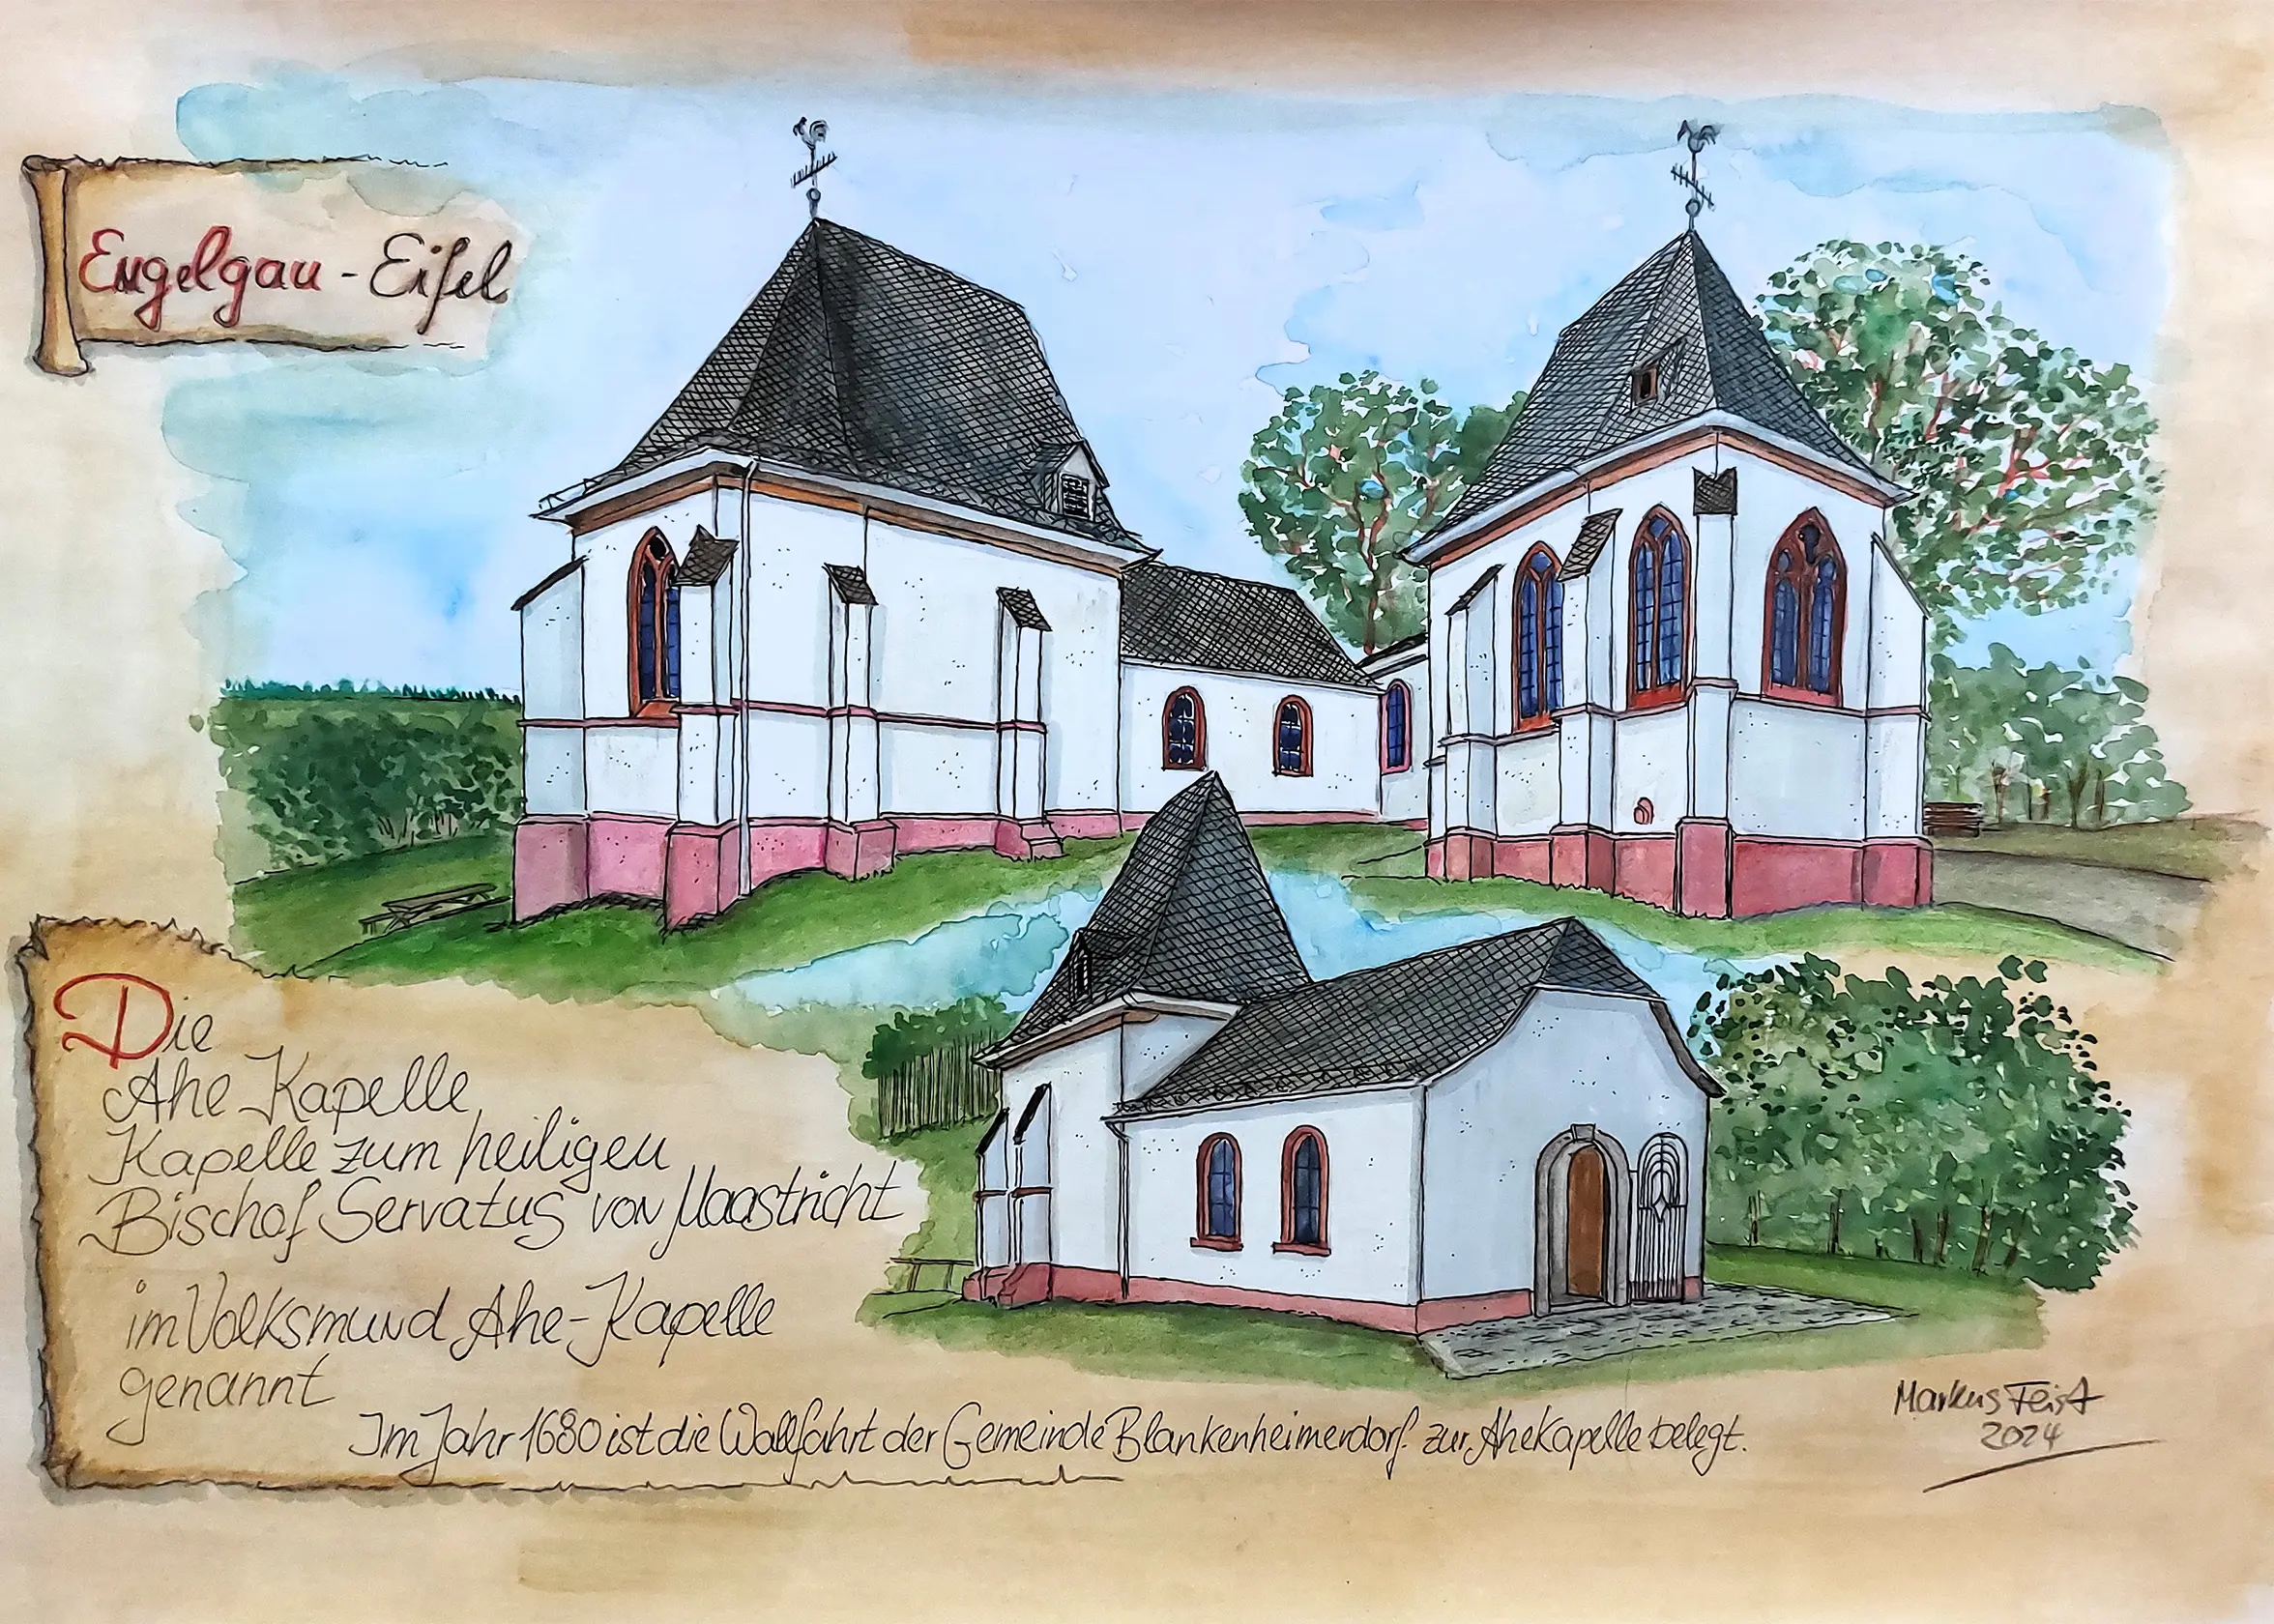 Engelgau - Eifel
Die
Ahe Kapelle
Kapelle zum heiligen
Bischof Servatus von Maastricht
im Volksmund Ahe-Kapelle
genannt
Im Jahr 1680 ist die Wallfahrt der Gemeinde Blankenheimerdorf zur Ahe Kapelle belegt.
Markus Feist
2024